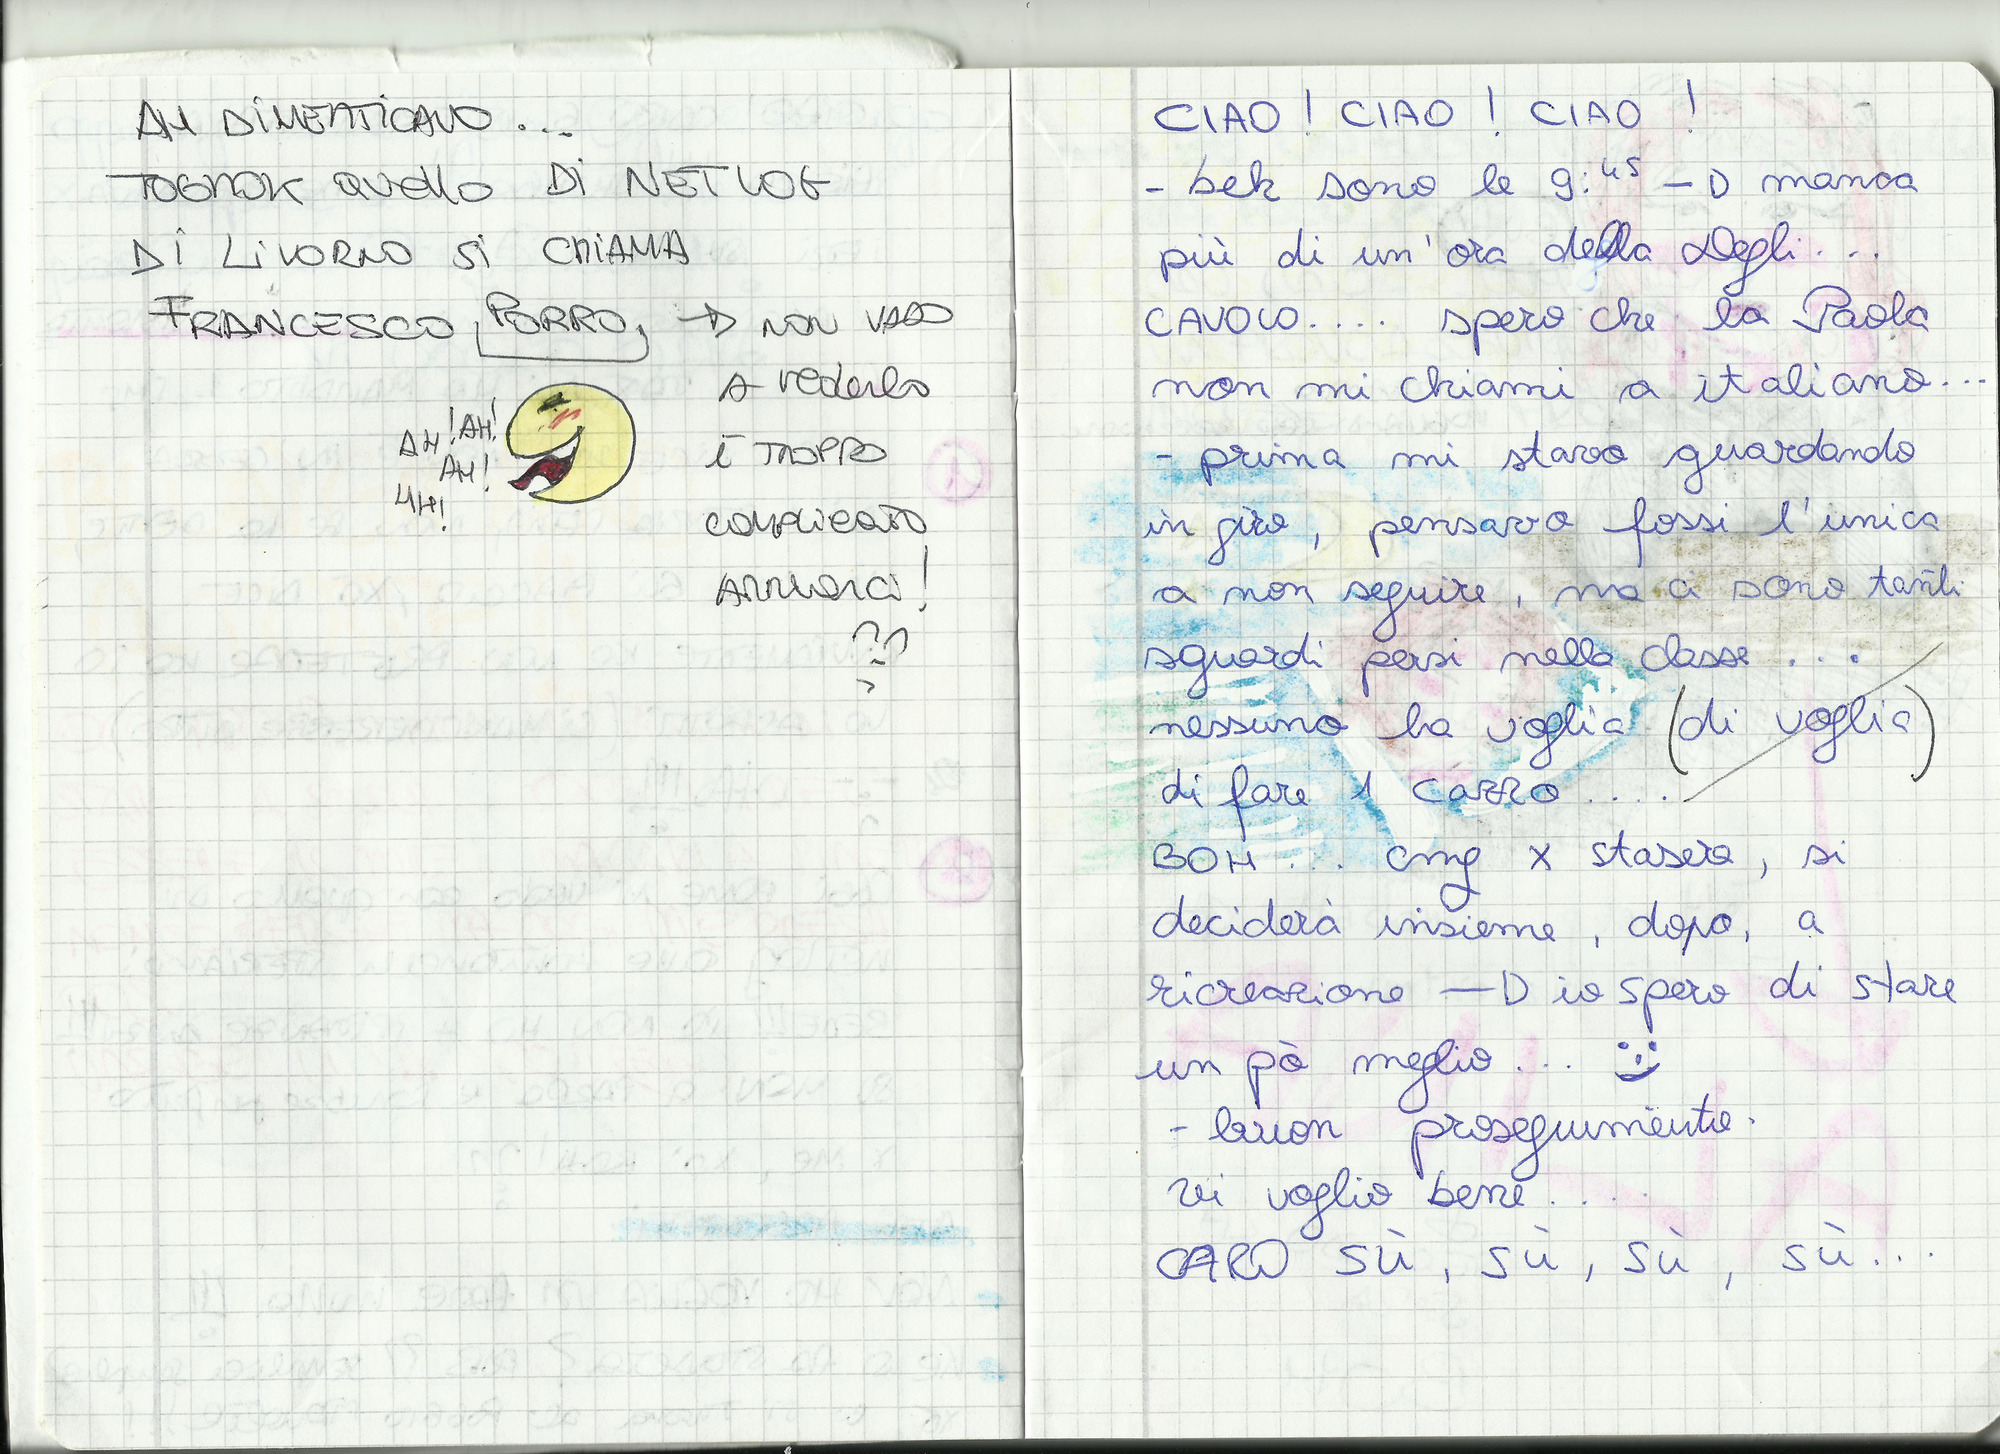 AH DIMENTICAVO ...
TOGNOK QUELLO DI NETLOG
DI LIVORNO SI CHIAMA
FRANCESCO PORRO → NON VADO
A vederlo
È TROPPO
COMPLICATO
ARRIVARCI!
??
AH! AH!
AH!
AH!
CIAO! CIAO! CIAO!
- beh sono le 9:45 → manca
più di un'ora della Degli....
CAVOLO.... spero che la Paola
non mi chiami a italiano...
- prima mi stavo guardando
in giro, pensavo fossi l'unica
a non seguire, ma ci sono tanti
sguardi persi nella classe ....
nessuno ha voglia (di voglia)
di fare 1 cazzo ....
BOH ... cmq x stasera, si
deciderà insieme, dopo, a
ricreazione → io spero di stare
un pò meglio ...
- buon proseguimento.
vi voglio bene ....
CARO SÙ, SÙ, SÙ, SÙ...